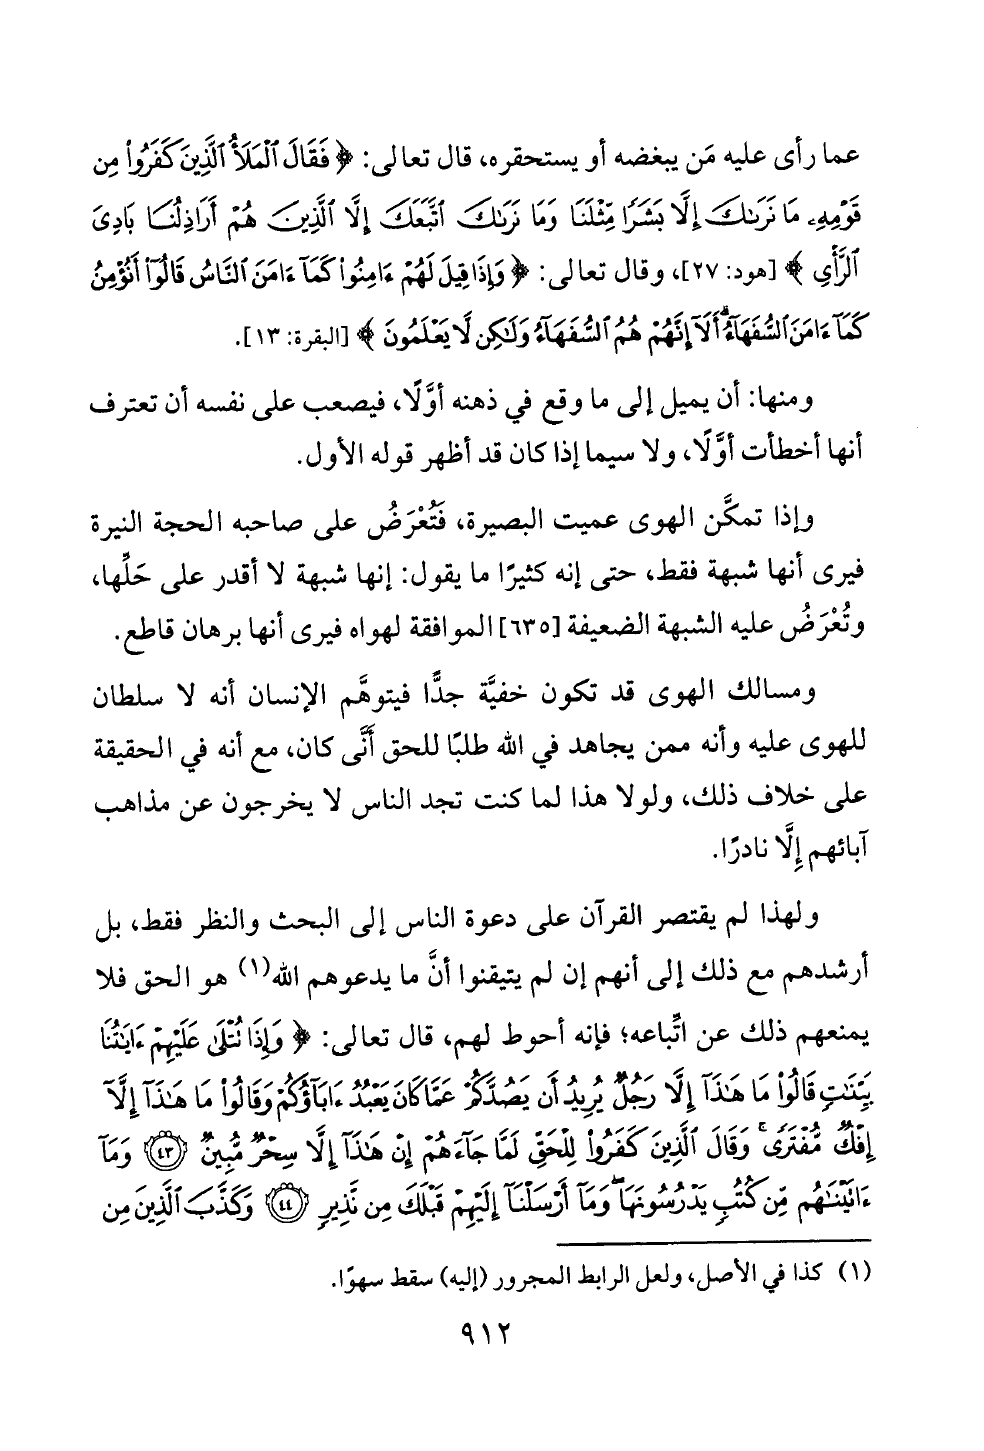 عما رأى عليه مَن يبغضه أو يستحقره، قال تعالى: ﴿ فَقَالَ ٱلْمَلَأُ ٱلَّذِينَ كَفَرُوا۟ مِن
قَوْمِهِۦ مَا نَرَىٰكَ إِلَّا بَشَرًا مِّثْلَنَا وَمَا نَرَىٰكَ ٱتَّبَعَكَ إِلَّا ٱلَّذِينَ هُمْ أَرَاذِلُنَا بَادِىَ
ٱلرَّأْىِ ﴾ [هود: ٢٧]، وقال تعالى: ﴿ وَإِذَا قِيلَ لَهُمْ ءَامِنُوا۟ كَمَآ ءَامَنَ ٱلنَّاسُ قَالُوٓا۟ أَنُؤْمِنُ
كَمَآ ءَامَنَ ٱلسُّفَهَآءُ ۗ أَلَآ إِنَّهُمْ هُمُ ٱلسُّفَهَآءُ وَلَٰكِن لَّا يَعْلَمُونَ ﴾ [البقرة: ١٣].
ومنها: أن يميل إلى ما وقع في ذهنه أوَّلًا، فيصعب على نفسه أن تعترف
أنها أخطأت أوَّلًا، ولا سيما إذا كان قد أظهر قوله الأول.
وإذا تمكَّن الهوى عميت البصيرة، فَتُعْرَضُ على صاحبه الحجة النيرة
فيرى أنها شبهة فقط، حتى إنه كثيرًا ما يقول: إنها شبهة لا أقدر على حَلِّها،
وتُعْرَضُ عليه الشبهة الضعيفة [٦٣٥] الموافقة لهواه فيرى أنها برهان قاطع.
ومسالك الهوى قد تكون خفيَّة جدًّا فيتوهَّم الإنسان أنه لا سلطان
للهوى عليه وأنه ممن يجاهد في الله طلبًا للحق أنَّى كان، مع أنه في الحقيقة
على خلاف ذلك، ولولا هذا لما كنت تجد الناس لا يخرجون عن مذاهب
آبائهم إِلَّا نادرًا.
ولهذا لم يقتصر القرآن على دعوة الناس إلى البحث والنظر فقط، بل
أرشدهم مع ذلك إلى أنهم إن لم يتيقنوا أنَّ ما يدعوهم الله(١) هو الحق فلا
يمنعهم ذلك عن اتِّباعه؛ فإنه أحوط لهم، قال تعالى: ﴿ وَإِذَا تُتْلَىٰ عَلَيْهِمْ ءَايَٰتُنَا
بَيِّنَٰتٍ قَالُوا۟ مَا هَٰذَآ إِلَّا رَجُلٌ يُرِيدُ أَن يَصُدَّكُمْ عَمَّا كَانَ يَعْبُدُ ءَابَآؤُكُمْ وَقَالُوا۟ مَا هَٰذَآ إِلَّآ
إِفْكٌ مُّفْتَرًى ۚ وَقَالَ ٱلَّذِينَ كَفَرُوا۟ لِلْحَقِّ لَمَّا جَآءَهُمْ إِنْ هَٰذَآ إِلَّا سِحْرٌ مُّبِينٌ ٤٣ وَمَآ
ءَاتَيْنَٰهُم مِّن كُتُبٍ يَدْرُسُونَهَا ۖ وَمَآ أَرْسَلْنَآ إِلَيْهِمْ قَبْلَكَ مِن نَّذِيرٍ ٤٤ وَكَذَّبَ ٱلَّذِينَ مِن
(١) كذا في الأصل، ولعل الرابط المجرور (إليه) سقط سهوًا.
٩١٢